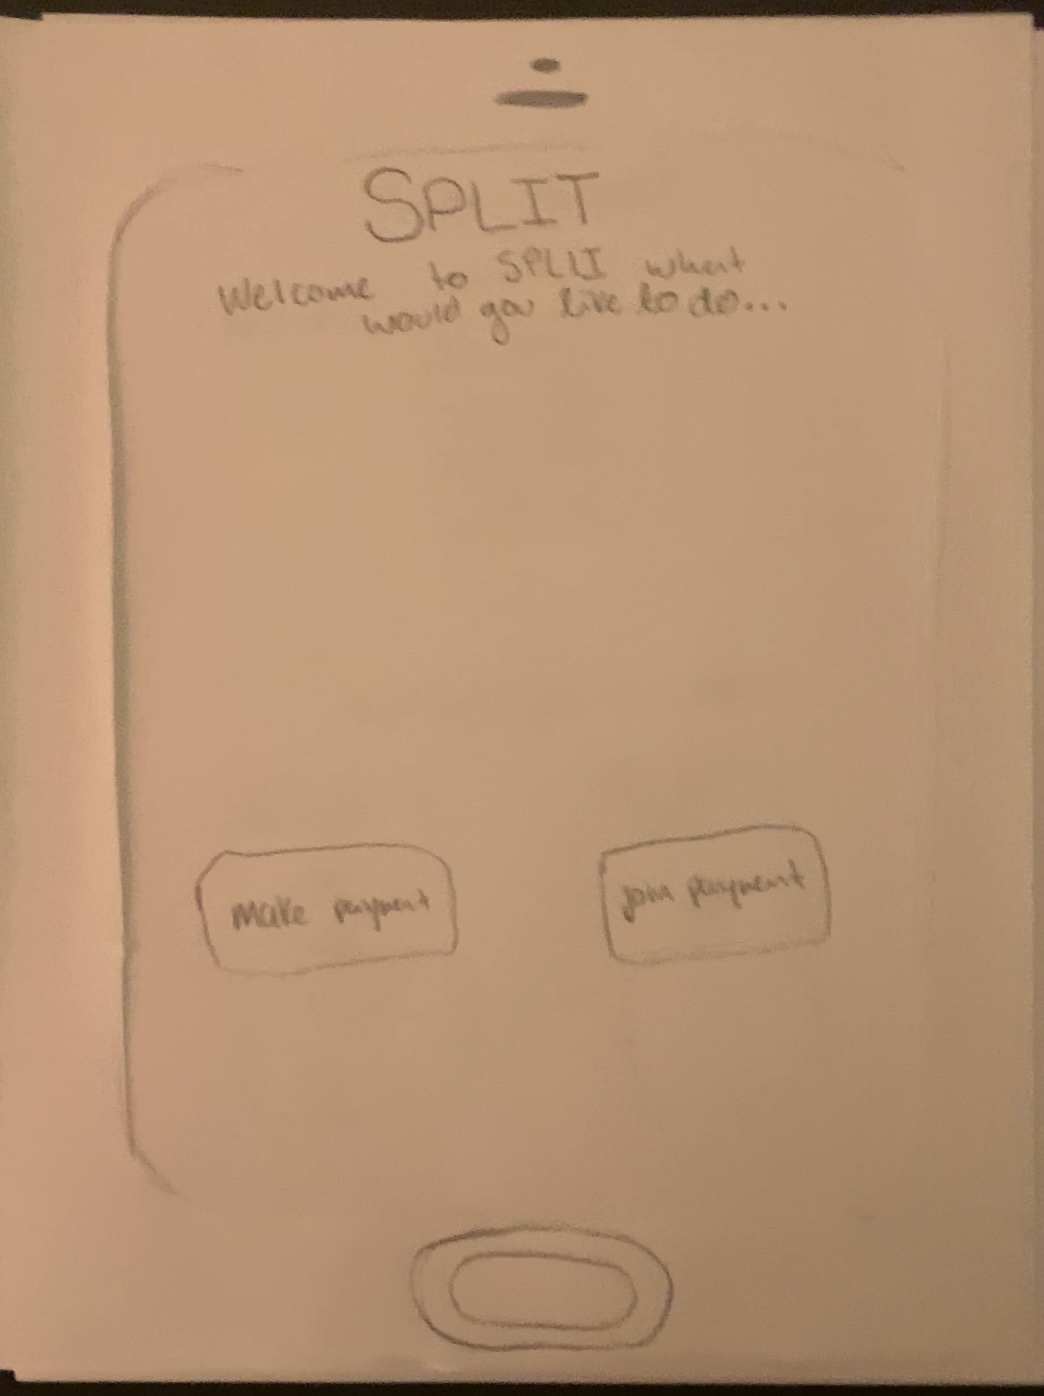 SPLIT
Welcome to SPLII what
would you like to do...
make payment
join payment